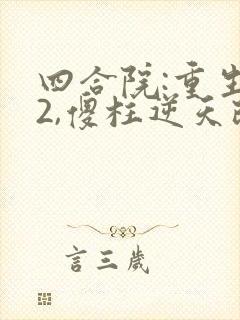 四合院:重生
2,傻柱逆天
言三歲